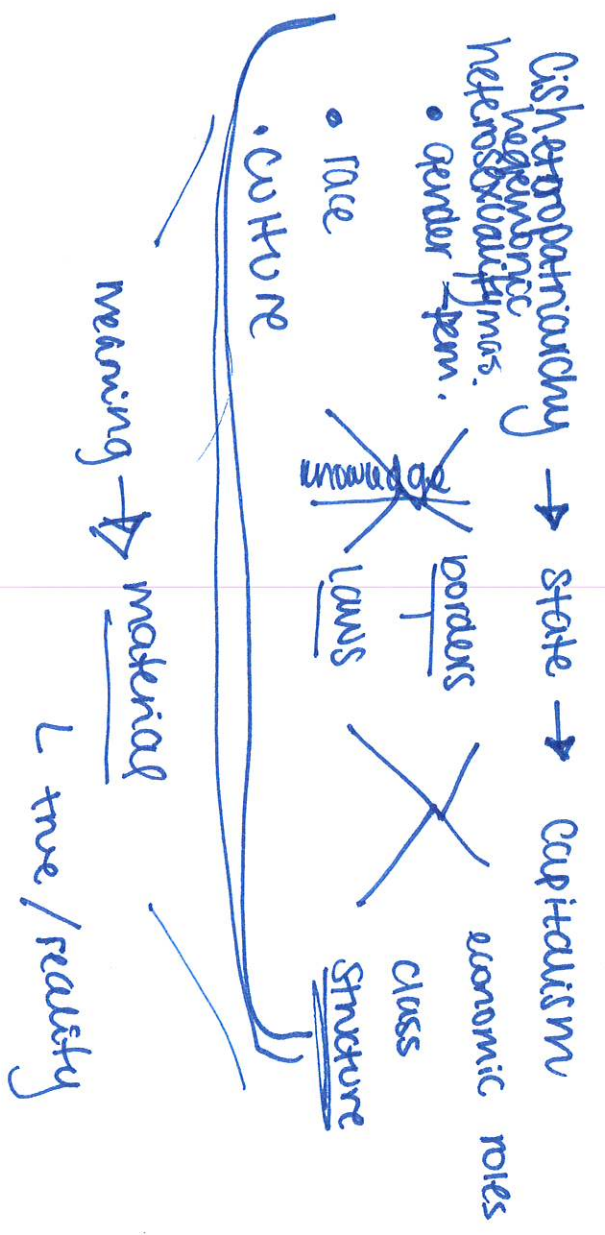 Cisheteropatriarchy → State → Capitalism
hegemonic
heterosexuality mas.
• gender - fem.
• race
• culture
knowledge
borders
laws
economic roles
class
structure
meaning → material
L true/reality